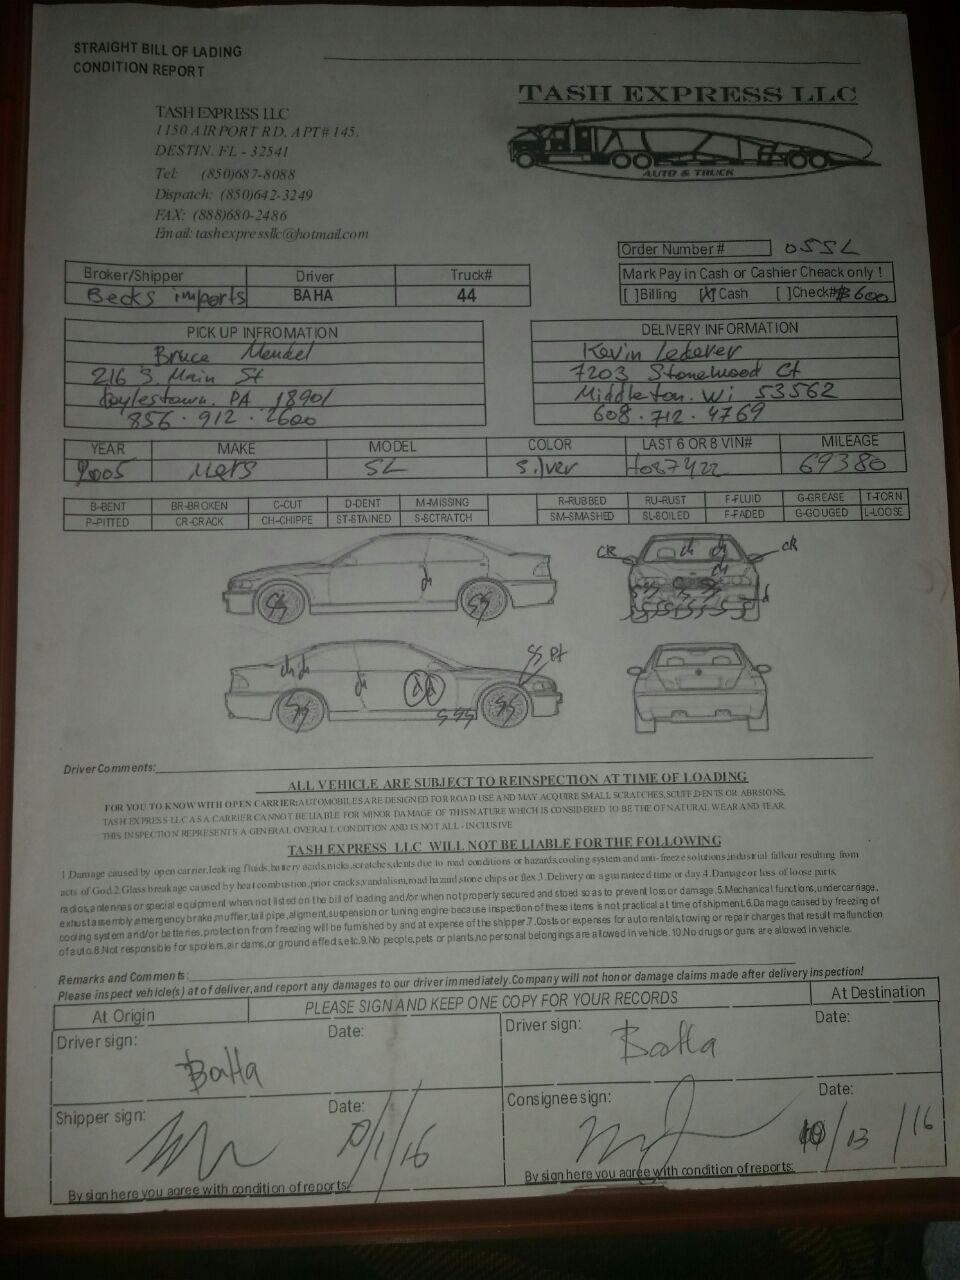 STRAIGHT BILL OF LADING
CONDITION REPORT
TASH EXPRESS LLC
AUTO & TRUCK
TASH EXPRESS LLC
1150 AIRPORT RD. APT# 145.
DESTIN. FL - 32541
Tel: (850)687-8088
Dispatch: (850)642-3249
FAX: (888)680-2486
Email: tashexpressllc@hotmail.com
Order Number # 05SL
Broker/Shipper Driver Truck#
Becks imports BAHA 44
Mark Pay in Cash or Cashier Cheack only !
[ ]Billing [X] Cash [ ]Check# $600
PICK UP INFROMATION
Bruce Mendel
216 S. Main St
Doylestown. PA 18901
856.912.2600
DELIVERY INFORMATION
Kevin Lederer
7203 Stonewood Ct
Middleton. Wi 53562
608.712.4769
YEAR MAKE MODEL COLOR LAST 6 OR 8 VIN# MILEAGE
2005 Mers SL Silver 69380
B-BENT BR-BROKEN C-CUT D-DENT M-MISSING R-RUBBED RU-RUST F-FLUID G-GREASE T-TORN
P-PITTED CR-CRACK CH-CHIPPE ST-STAINED S-SCTRATCH SM-SMASHED SL-SOILED F-FADED G-GOUGED L-LOOSE
CR ch ch CR
ch
ch
SS SS
ch ch ch SS Pt
SS SSS SS
Driver Comments:
ALL VEHICLE ARE SUBJECT TO REINSPECTION AT TIME OF LOADING
FOR YOU TO KNOW WITH OPEN CARRIER:AUTOMOBILES ARE DESIGNED FOR ROAD USE AND MAY ACQUIRE SMALL SCRATCHES, SCUFF,DENTS OR ABRSIONS,
TASH EXPRESS LLC AS A CARRIER CANNOT BE LIABLE FOR MINOR DAMAGE OF THIS NATURE WHICH IS CONSIDERED TO BE THE OF NATURAL WEAR AND TEAR.
THIS INSPECTION REPRESENTS A GENERAL OVERALL CONDITION AND IS NOT ALL - INCLUSIVE
TASH EXPRESS LLC WILL NOT BE LIABLE FOR THE FOLLOWING
1.Damage caused by open carrier,leaking fluids,battery acids,nicks,scratches,dents due to road conditions or hazards,cooling system and anti-freeze solutions,industrial fallout resulting from
acts of God.2.Glass breakage caused by heat combustion,prior cracks,vandalism,road hazard,stone chips or flex.3.Delivery on a guaranteed time or day.4.Damage or loss of loose parts,
radios,antennas or special equipment when not listed on the bill of loading and/or when not properly secured and stoed so as to prevent loss or damage.5.Mechanical functions,undercarriage,
exhust assembly,emergency brake,muffler,tail pipe,aligment,suspension or tuning engine because inspection of these items is not practical at time of shipment.6.Damage caused by freezing of
cooling system and/or batteries,protection from freezing will be furnished by and at expense of the shipper.7.Costs or expenses for auto rentals,towing or repair charges that result malfunction
of auto.8.Not responsible for spoilers,air dams,or ground effects,etc.9.No people,pets or plants,no personal belongings are allowed in vehicle.10.No drugs or guns are allowed in vehicle.
Remarks and Comments:
Please inspect vehicle(s) at of deliver,and report any damages to our driver immediately.Company will not honor damage claims made after delivery inspection!
At Origin PLEASE SIGN AND KEEP ONE COPY FOR YOUR RECORDS At Destination
Driver sign: Date: Driver sign: Date:
Shipper sign: Date: Consignee sign: Date:
/1/16 10/13/16
By sign here you agree with condition of reports: By sign here you agree with condition of reports: